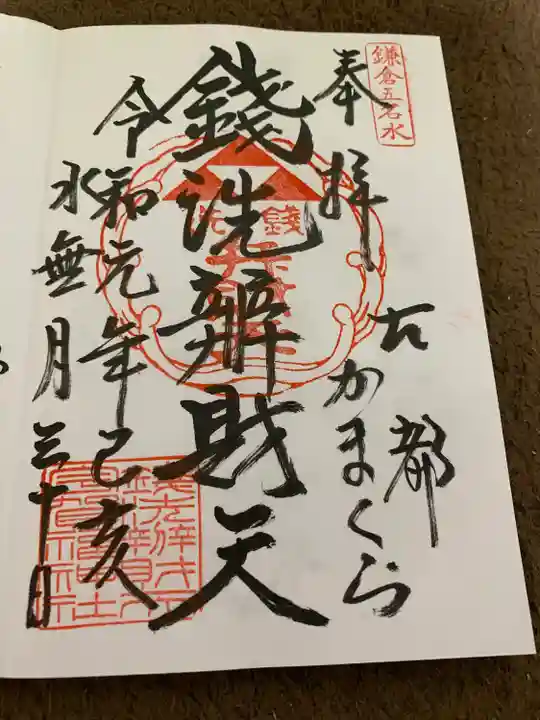 鎌倉五名水
奉拝
古都
かまくら
銭洗辨財天
令和元年己亥
水無月三十日
銭洗